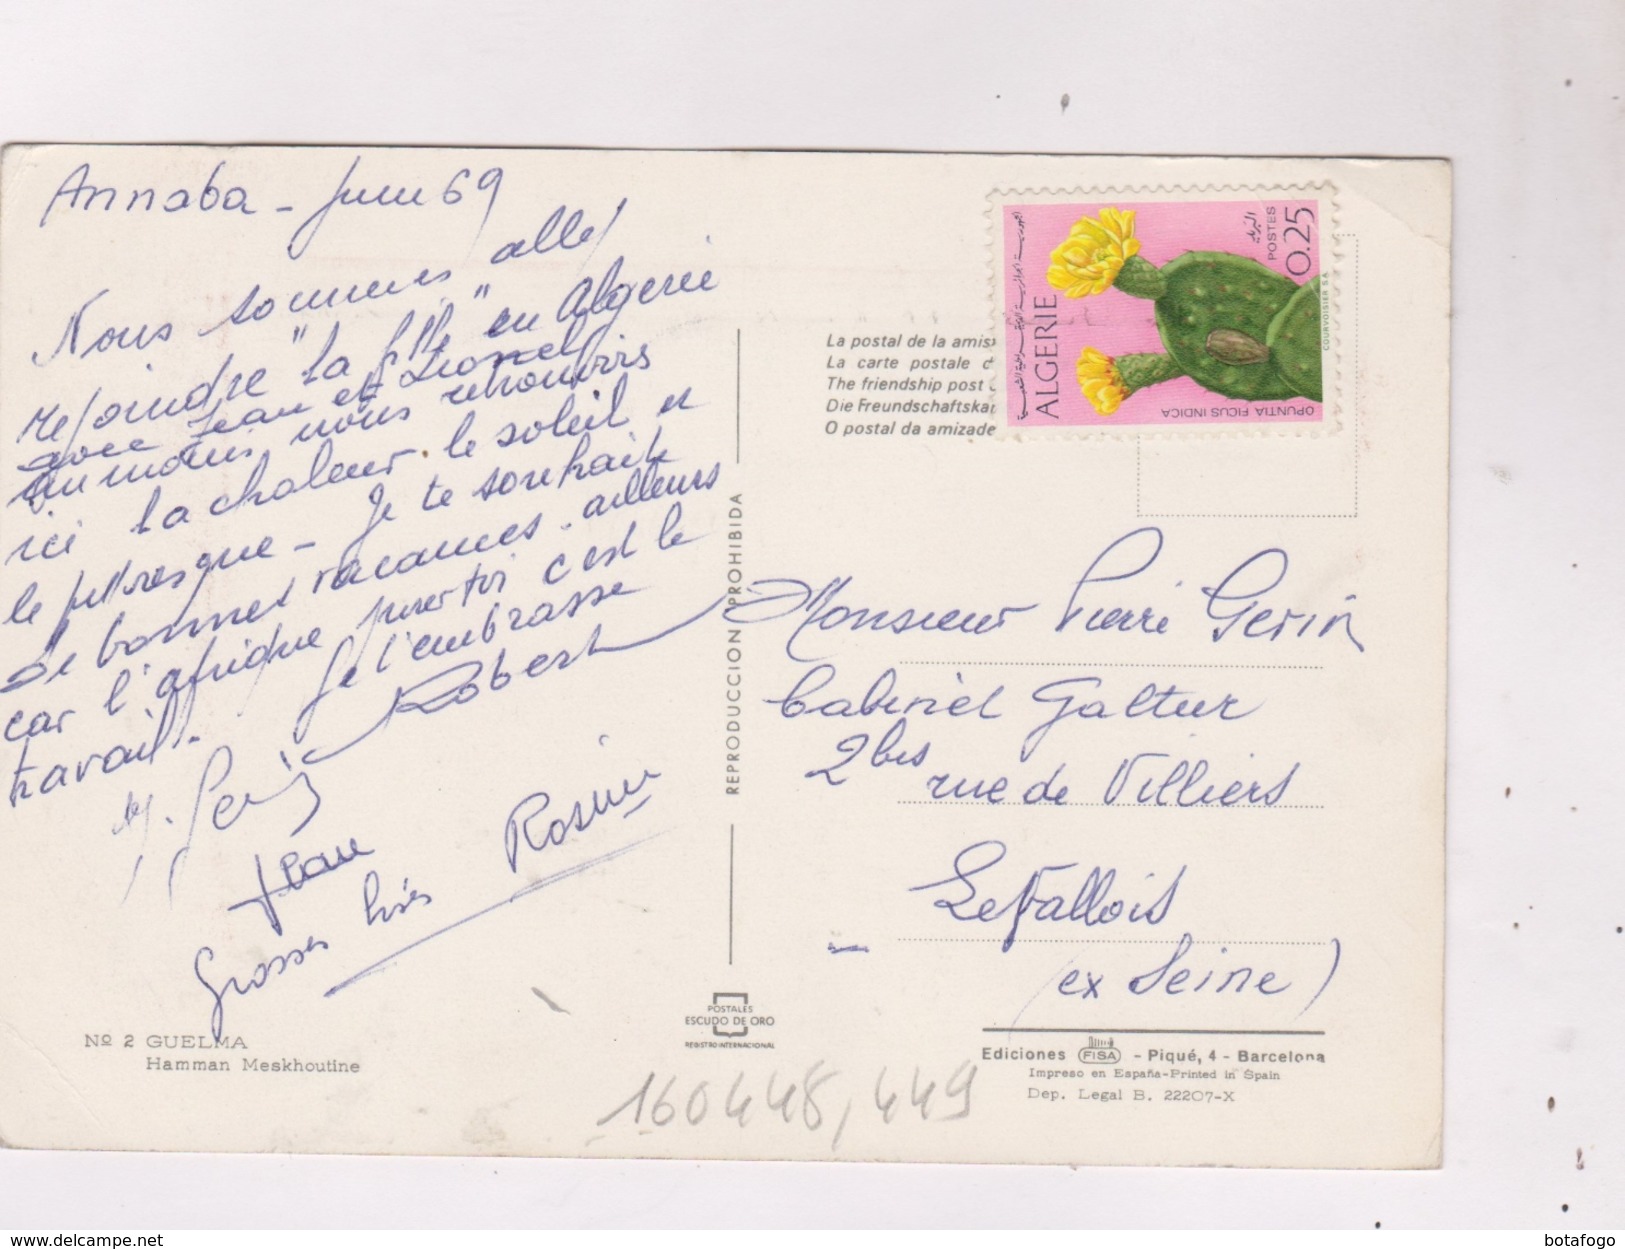 Annaba - Juin 69
Nous sommes allés
rejoindre "la fille" en Algerie
avec Jean et Lionel
Au moins nous retrouvons
ici la chaleur. le soleil et
le pittoresque - Je te souhaite
de bonnes vacances. ailleurs
car l'afrique pour toi c'est le
travail.
Je t'embrasse
Robert
Jean
Grosses bises
Nº 2 GUELMA
Hamman Meskhoutine
REPRODUCCION PROHIBIDA
POSTALES
ESCUDO DE ORO
REGISTRO INTERNACIONAL
La postal de la amis
La carte postale d
The friendship post
Die Freundschaftskar
O postal da amizade
ALGERIE
POSTES
0.25
OPUNTIA FICUS INDICA
COURVOISIER S.A.
Monsieur Pierre Gerin
Cabinet Galtier
2 bis rue de Villiers
Levallois
(ex Seine)
Ediciones FISA - Piqué, 4 - Barcelona
Impreso en España-Printed in Spain
Dep. Legal B. 22207-X
160448,449
botafogo
www.delcampe.net